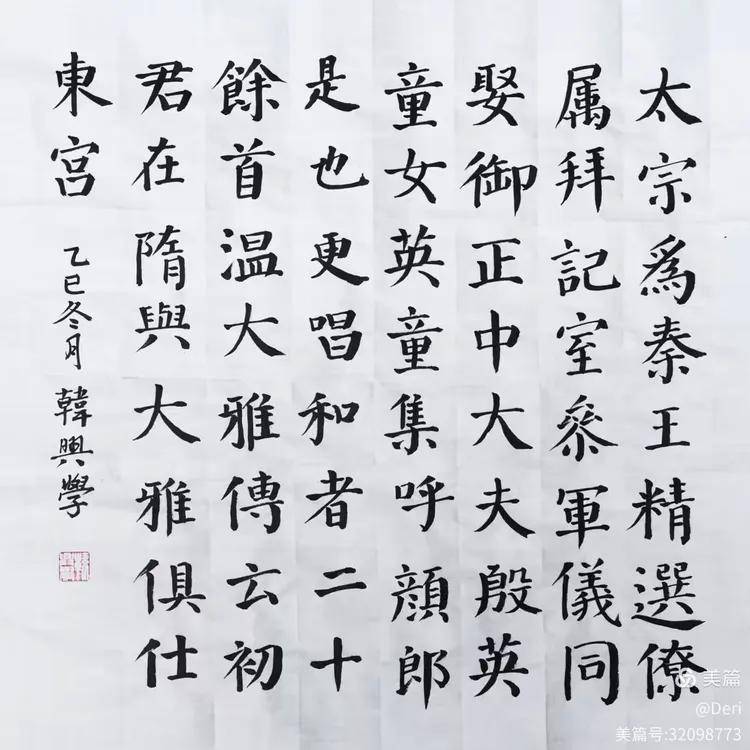 太宗爲秦王精選僚
属拜記室叅軍儀同
娶御正中大夫殷英
童女英童集呼顔郎
是也更唱和者二十
餘首温大雅傳云初
君在隋與大雅俱仕
東宫
乙巳冬月 韓興學
美篇
@Deri
美篇号:32098773